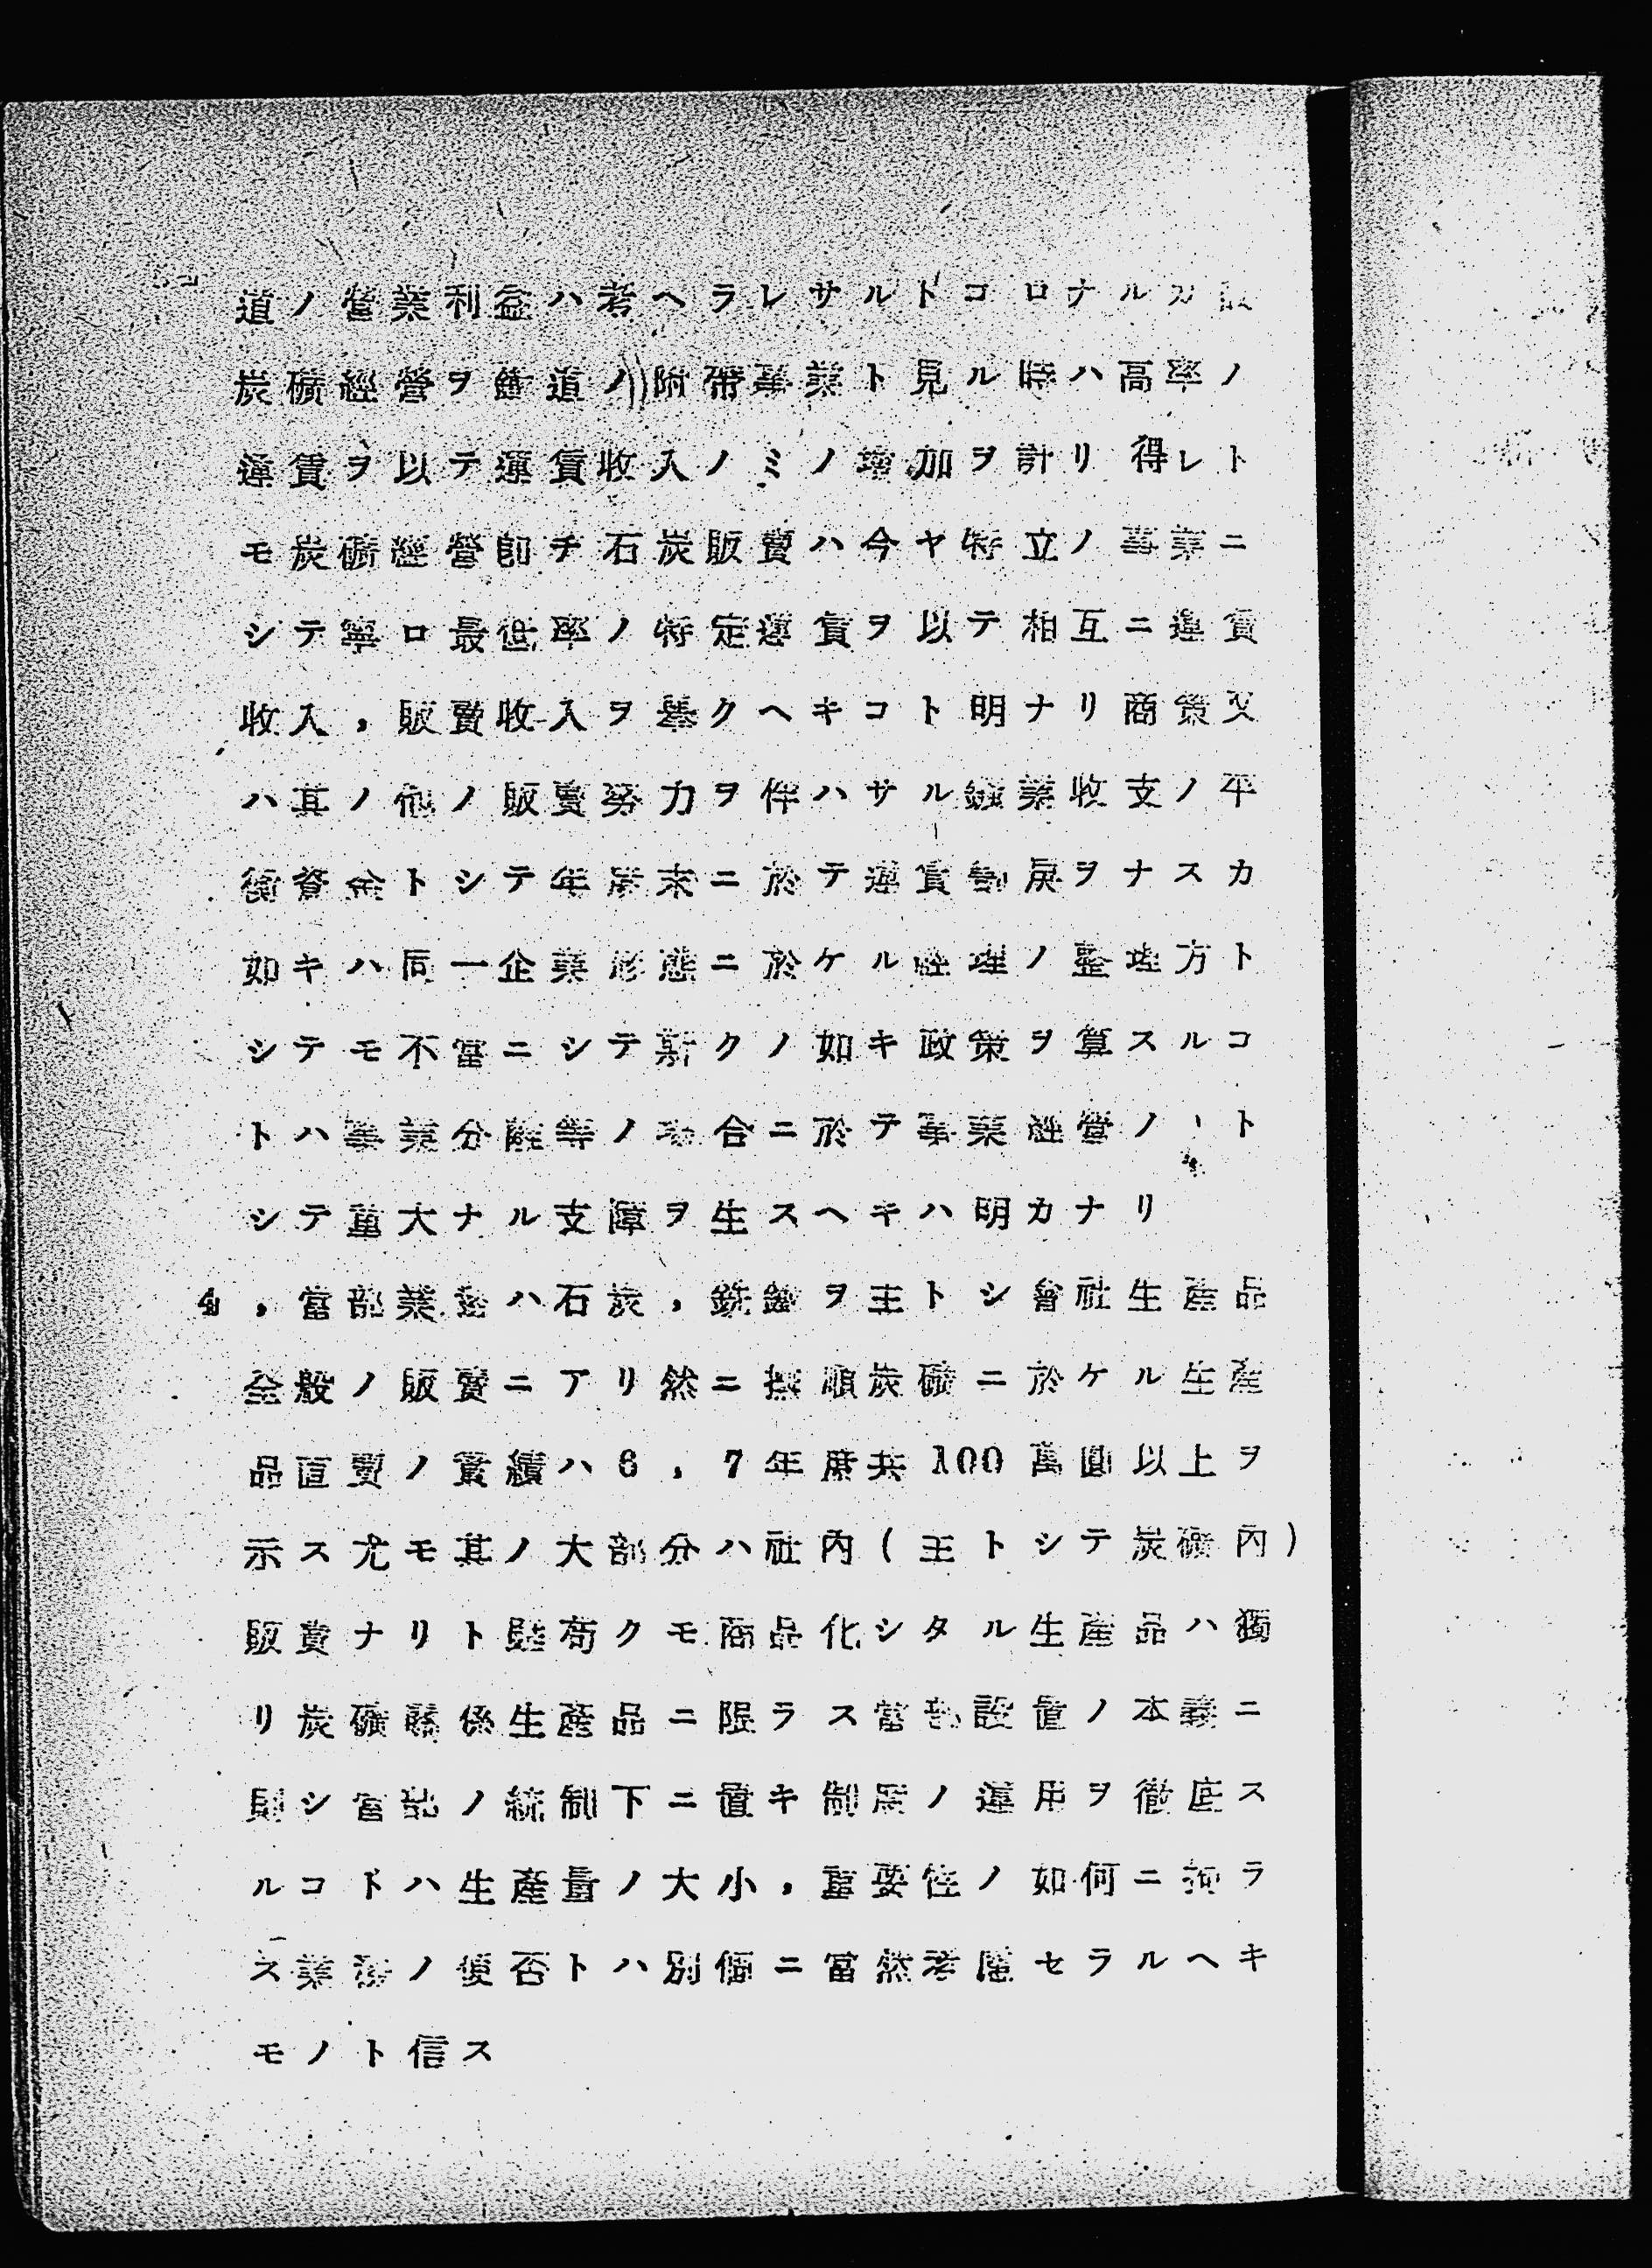 道ノ營業利益ハ考ヘラレサルトコロナルカ
炭礦經營ヲ鐵道ノ附帶事業ト見ル時ハ高率ノ
運賃ヲ以テ運賃收入ノミノ增加ヲ計リ得レト
モ炭礦經營卽チ石炭販賣ハ今ヤ特立ノ事業ニ
シテ寧ロ最低率ノ特定運賃ヲ以テ相互ニ運賃
收入,販賣收入ヲ擧クヘキコト明ナリ商策又
ハ其ノ他ノ販賣努力ヲ伴ハサル鑛業收支ノ平
衡資金トシテ年度末ニ於テ運賃割戾ヲナスカ
如キハ同一企業形態ニ於ケル經理ノ整理方ト
シテモ不當ニシテ斯クノ如キ政策ヲ算スルコ
トハ事業分離等ノ場合ニ於テ事業經營ノ ト
シテ重大ナル支障ヲ生スヘキハ明カナリ
4,當部業務ハ石炭,銑鐵ヲ主トシ會社生產品
全般ノ販賣ニアリ然ニ撫順炭礦ニ於ケル生產
品直賣ノ實績ハ6,7年度共100萬圓以上ヲ
示ス尤モ其ノ大部分ハ社內(主トシテ炭礦內)
販賣ナリト雖苟クモ商品化シタル生產品ハ獨
リ炭礦關係生產品ニ限ラス當部設置ノ本義ニ
則シ當部ノ統制下ニ置キ制度ノ運用ヲ徹底ス
ルコトハ生產量ノ大小,重要性ノ如何ニ拘ラ
ス業務ノ便否トハ別個ニ當然考慮セラルヘキ
モノト信ス